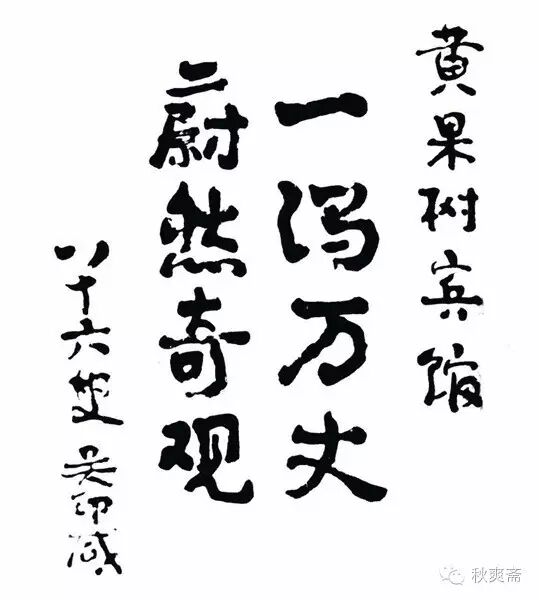 黄果树宾馆
一泻万丈
蔚然奇观
八十六叟 吴印咸
秋爽斋